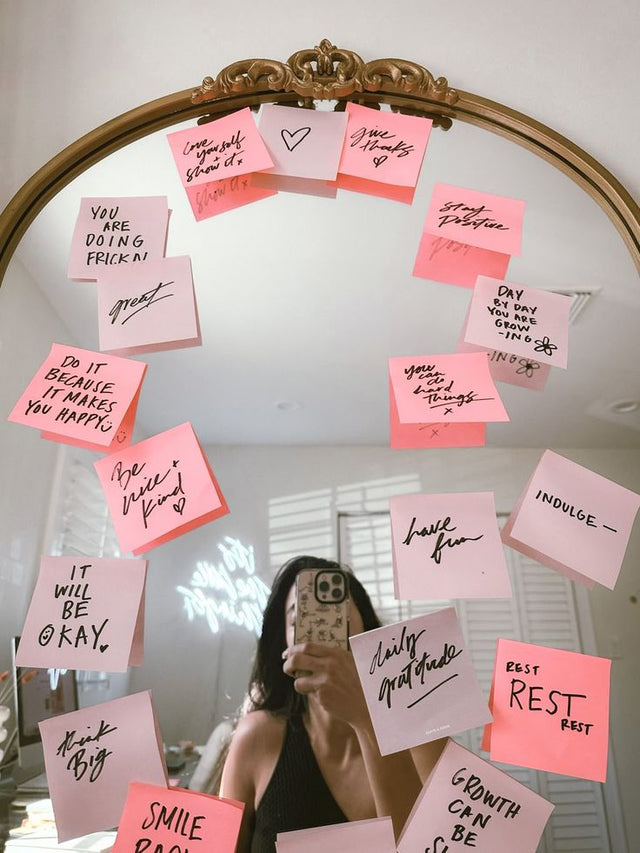 Love
yourself
+
show it x
give
thanks
YOU
ARE
DOING
FRICKIN
great
stay
Positive
DAY
BY DAY
YOU ARE
GROW
-ING
DO IT
BECAUSE
IT MAKES
YOU HAPPY
you
can
do
hard
Things
x
Be
nice +
kind
have
fun
INDULGE —
IT
WILL
BE
OKAY.
daily
gratitude
REST
REST
REST
think
Big
SMILE
GROWTH
CAN
BE